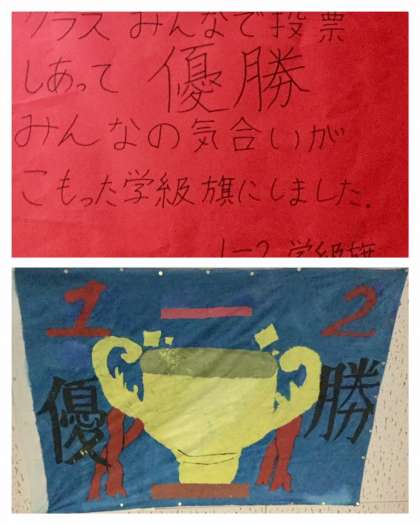 クラス みんなで投票
しあって 優勝
みんなの気合いが
こもった学級旗にしました.
1-2 学級旗
1 - 2
優 勝